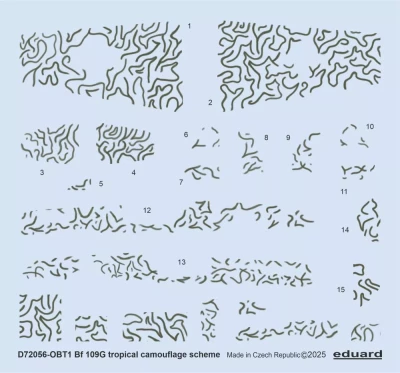 1
2
3
4
5
6
7
8
9
10
11
12
13
14
15
D72056-OBT1 Bf 109G tropical camouflage scheme Made in Czech Republic©2025 eduard